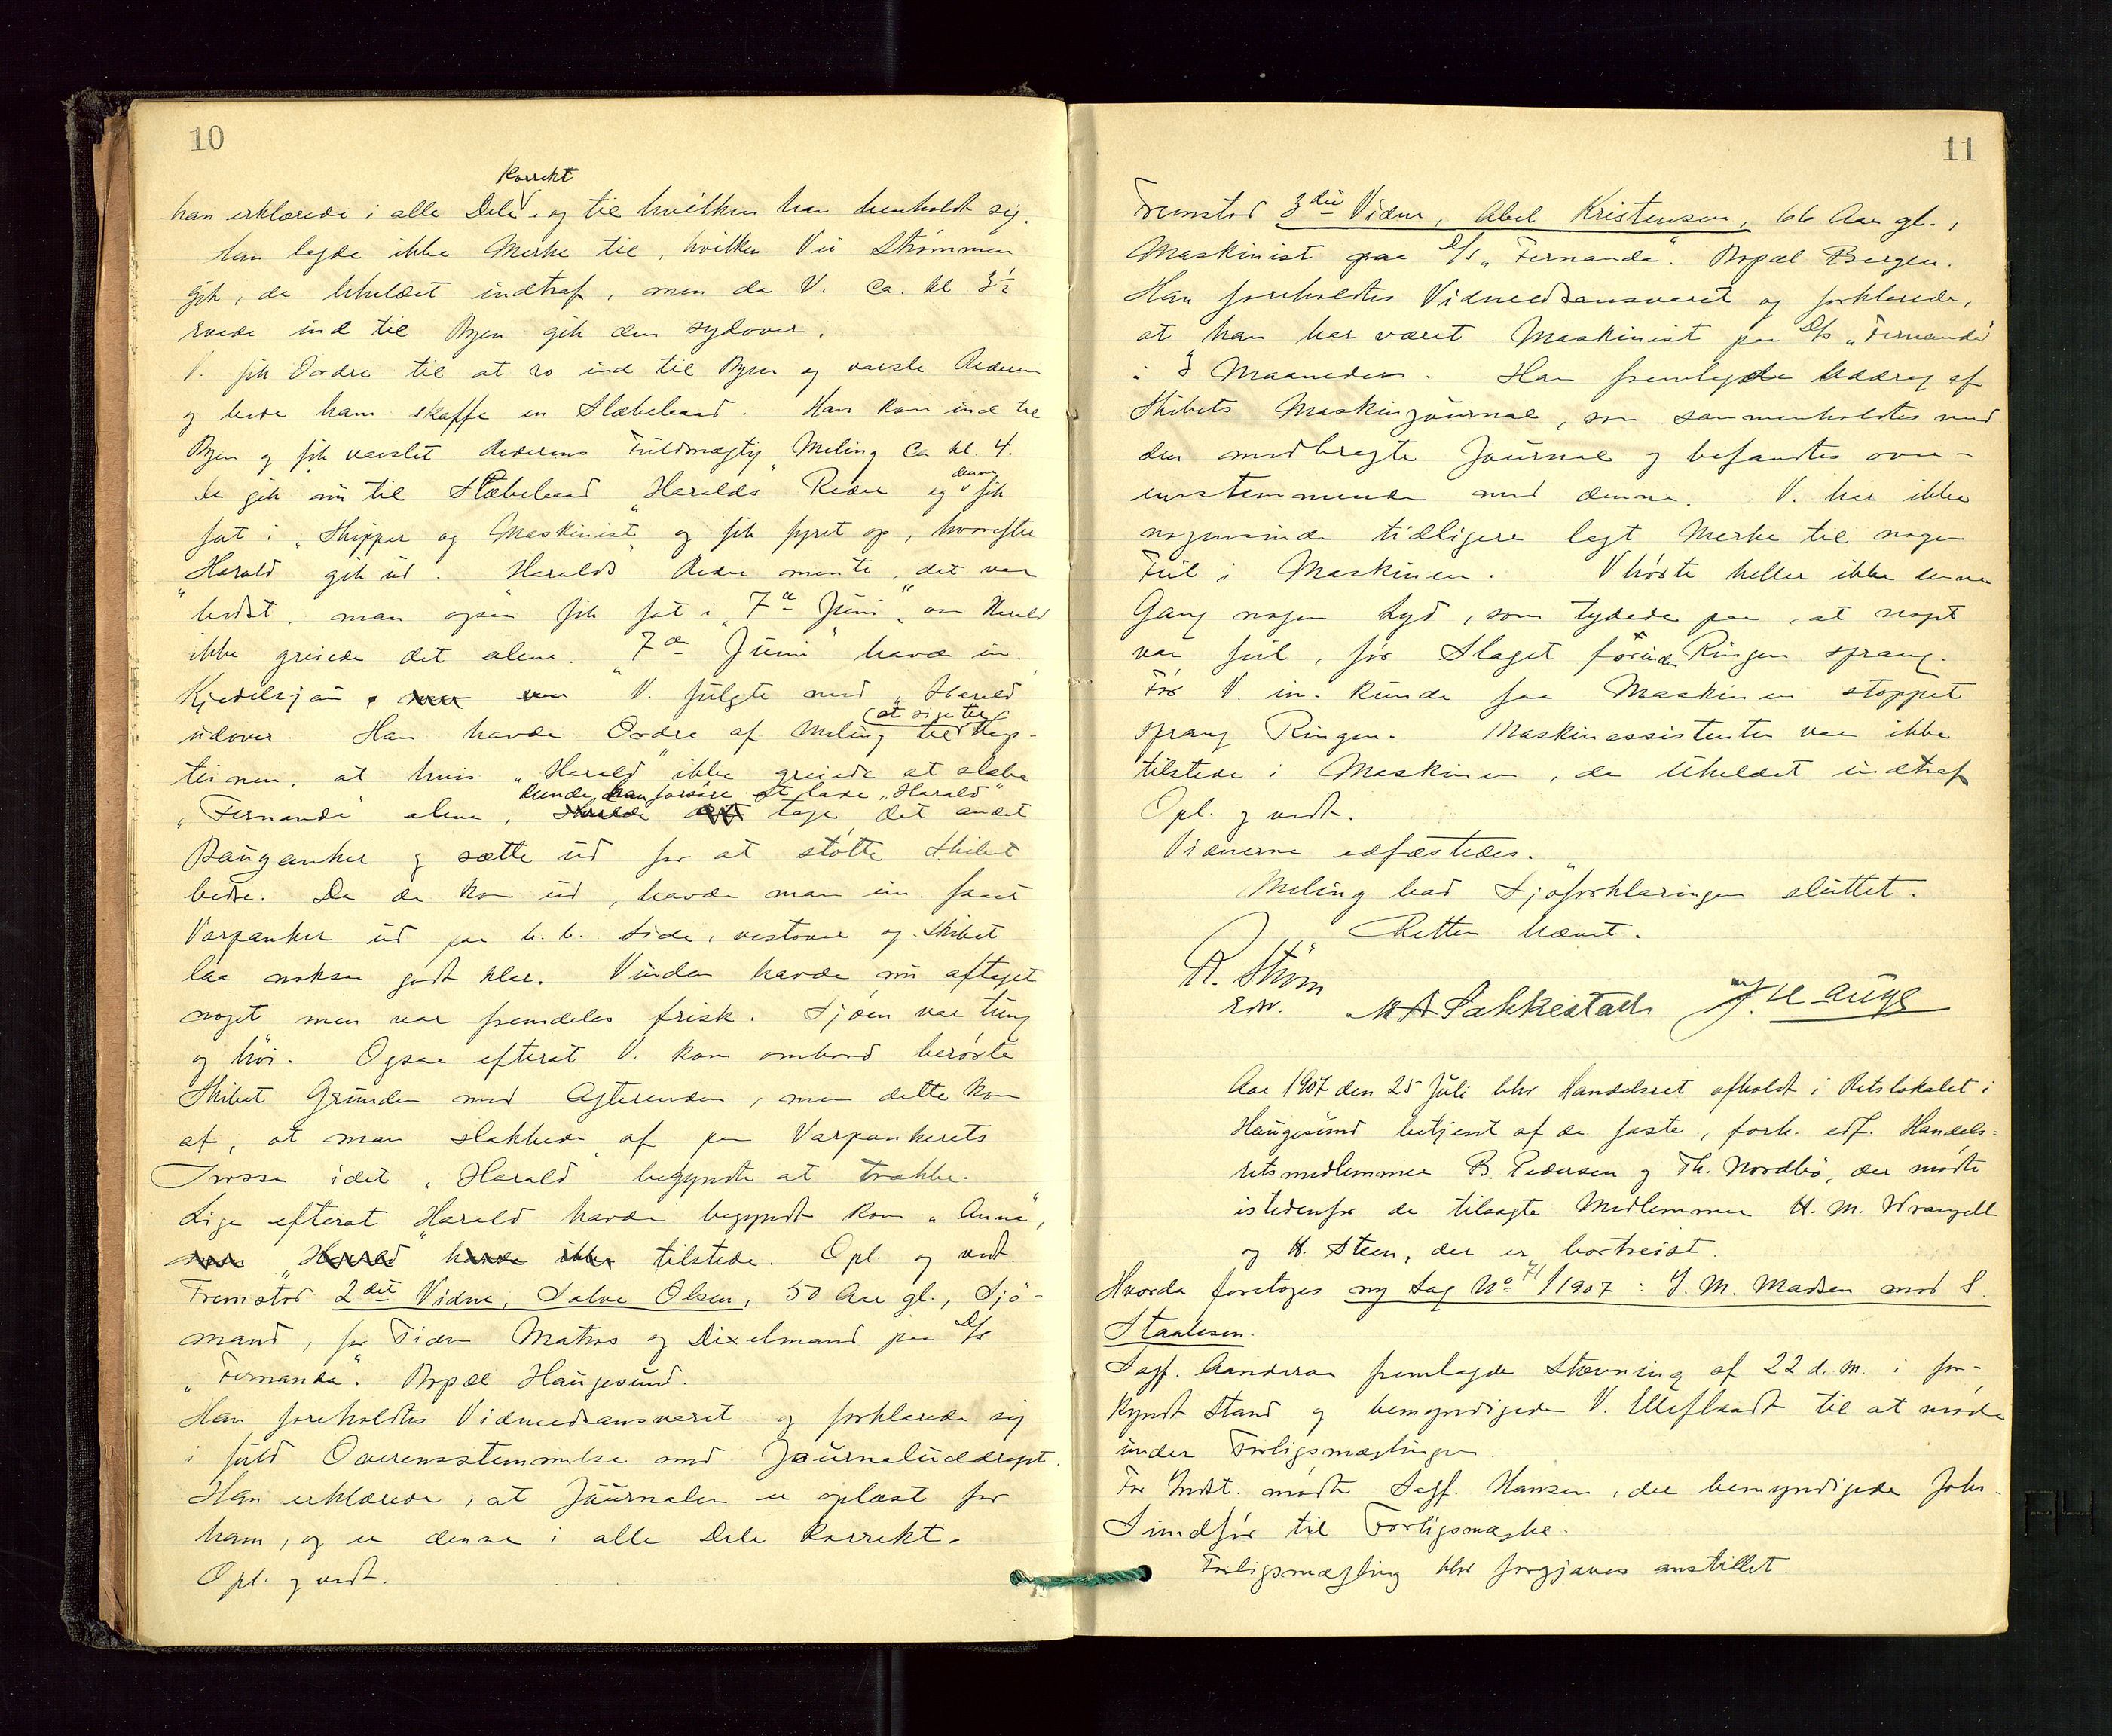 10
han erklærede i alle Dele korrekt og til hvilken han henholdt sig.
Han lagde ikke Merke til, hvilken Vei Strømmen
gik, da Uheldet indtraf, men da V. ca. kl 3½
roede ind til Byen gik den sydover.
V. fik Ordre til at ro ind til Byen og varsle Rederen
og bede ham skaffe en Slæbebaad. Han kom ind til
Byen og fik varslet Rederens Fuldmægtig Meling ca kl. 4.
De gik nu til Slæbebaad "Haralds" Reder og denne fik
fat i Skipper og Maskinist og fik fyret op, hvorefter
"Harald" gik ud. Haralds Reder mente, det var
bedst, man ogsaa fik fat i "7de Juni", om Harald
ikke greiede det alene. "7de Juni" havde im.
Kjedelsjau. V. fulgte med "Harald"
udover. Han havde Ordre af Meling (at sige til Kap-
teinen, at hvis "Harald" ikke greiede at slæbe
"Fernanda" alene, kunde han forsøre at lade "Harald" tage det andet
Bauganker og sætte ud for at støtte Skibet
bedre. Da de kom ud, havde man im. faaet
Varpanker ud paa b.b. Side, vestover og Skibet
laa noksaa godt klar. Vinden havde nu aftaget
noget men var fremdeles frisk. Sjøen var tung
og høi. Ogsaa efterat V. kom ombord berørte
Skibet Grunden med Agterenden, men dette kom
af, at man slakkede af paa Varpankerets
Trosse idet "Harald" begyndte at trække.
Lige efterat Harald havde begyndt kom "Anna",
tilstede. Opl. og vedt.
Fremstod 2det Vidne, Salve Olsen, 50 Aar gl., Sjø-
mand, for Tiden Matros og Dixelmand paa D/S
"Fernanda". Bopæl Haugesund.
Han foreholdtes Vidneedsansvaret og forklarede sig
i fuld Overensstemmelse med Journaluddraget.
Han erklærede, at Journalen er oplæst for
ham, og er denne i alle Dele korrekt.
Opl. og vedt.
11
Fremstod 3die Vidne, Abel Kristensen, 66 Aar gl.,
Maskinist paa D/S "Fernanda". Bopæl Bergen.
Han foreholdtes Vidneedsansvaret og forklarede,
at han har været Maskinist paa D/S "Fernanda"
i 3 Maaneder. Han fremlagde Uddrag af
Skibets Maskinjournal, som sammenholdtes med
den medbragte Journal og befandtes over-
ensstemmende med denne. V. har ikke
nogensinde tidligere lagt Merke til nogen
Feil i Maskinen. V hørte heller ikke denne
Gang nogen Lyd, som tydede paa, at noget
var feil, før Slaget førinden Ringen sprang.
Før V. im. kunde faa Maskinen stoppet
sprang Ringen. Maskinassistenten var ikke
tilstede i Maskinen, da Uheldet indtraf
Opl. og vedt.
Vidnerne edfæstedes.
Meling bad Sjøforklaringen sluttet.
Retten hævet.
R. Strøm
edv. M A Sakkestad J. Hauge
Aar 1907 den 25 Juli blev Handelsret afholdt i Retslokalet i
Haugesund betjent af de faste, forh. edf. Handels-
retsmedlemmer B. Pedersen og Th. Nordbø, der mødte
istedenfor de tilsagte Medlemmer H. M. Wrangell
og H. Steen, der er bortreist.
Hvorda foretoges ny Sag No 71/1907: J. M. Madsen mod S.
Staalesen.
Sagf. Aanderaa fremlagde Stævning af 22 d.M. i for-
kyndt Stand og bemyndigede V. Elleflaadt til at møde
under Forligsmæglingen
For Indst. mødte Sagf. Hansen, der bemyndigede Johs.
Sundfør til Forligsmægle.
Forligsmægling blev forgjæves anstillet.